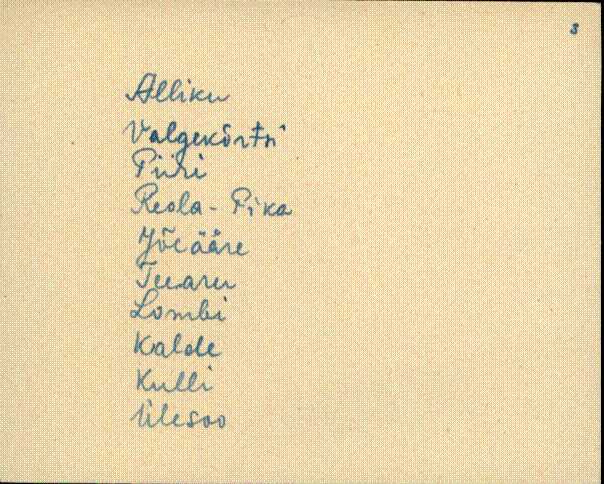 3
Alliku
Valgekõrtsi
Piiri
Reola-Pika
Jõeääre
Tuaru
Lombi
Kalde
Kulli
Ülesoo